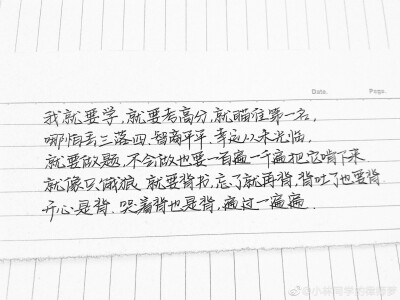 Date.
Page.
我就要学,就要考高分,就瞄准第一名,
哪怕丢三落四,智商平平,幸运从未光临,
就要做题,不会做也要一百遍一千遍把它啃下来
就像只饿狼,就要背书,忘了就再背,背吐了也要背
开心是背.哭着背也是背,通过一遍遍.